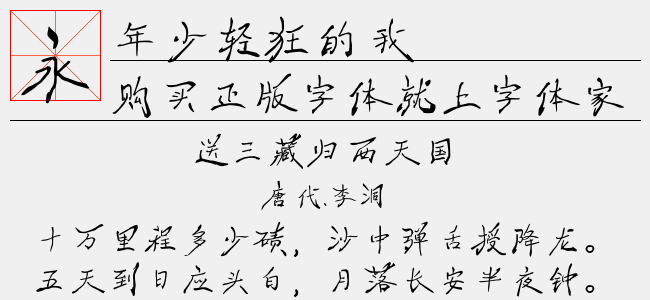 永
年少轻狂的我
购买正版字体就上字体家
送三藏归西天国
唐代.李洞
十万里程多少碛，沙中弹舌授降龙。
五天到日应头白，月落长安半夜钟。